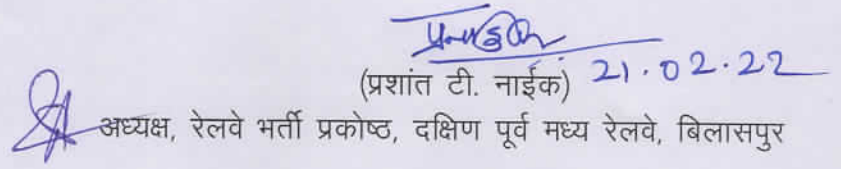 (प्रशांत टी. नाईक) 21.02.22
अध्यक्ष, रेलवे भर्ती प्रकोष्ठ, दक्षिण पूर्व मध्य रेलवे, बिलासपुर